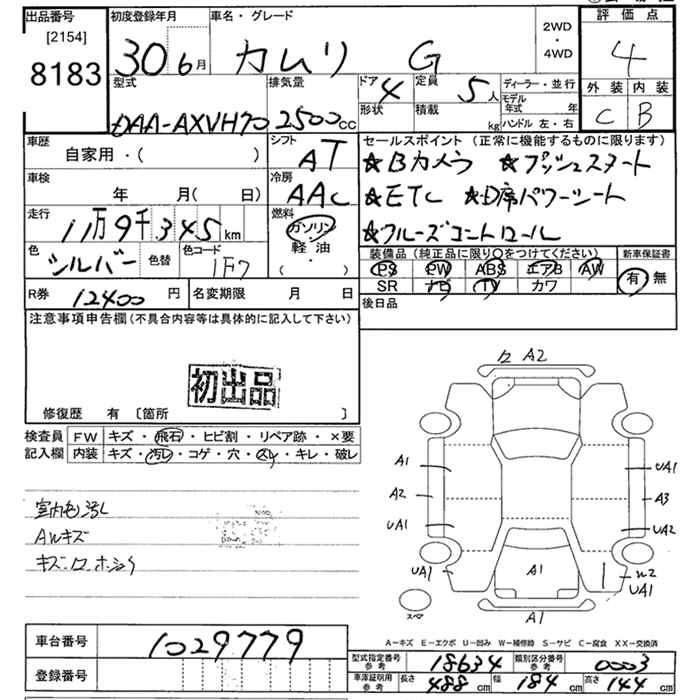 出品番号
[2154]
8183
初度登録年月
30 6月
車名・グレード
カムリ G
2WD
・
4WD
評価点
4
外装 内装
C B
型式
DAA-AXVH70
排気量
2500cc
ドア 4
定員 5人
形状
積載 kg
ディーラー・並行
モデル年式 年
ハンドル 左・右
車歴
自家用・( )
シフト
AT
車検
年 月( 日)
冷房
AAC
走行
11万9千345km
燃料
ガソリン
軽油
( ・ )
色
シルバー
色替
色コード
1F7
R券 12400円
名変期限 月 日
セールスポイント (正常に機能するものに限ります)
★Bカメラ ★プッシュスタート
★ETC ★D席パワーシート
★クルーズコントロール
装備品 (純正品に限り○をつけてください)
PS PW ABS エアB AW
SR ナビ TV カワ
新車保証書
有 無
後日品
注意事項申告欄 (不具合内容等は具体的に記入して下さい)
初出品
修復歴 有 〔箇所 〕
検査員
記入欄
FW キズ・飛石・ヒビ割・リペア跡・×要
内装 キズ・汚レ・コゲ・穴・スレ・キレ・破レ
室内色汚レ
AWキズ
A2
A1
UA1
A2
A3
UA1
UA2
UA1
A1
UA1
A1
スペア
A-キズ E-エクボ U-凹み W-補修跡 S-サビ C-腐食 XX-交換済
車台番号 1029779
登録番号
型式指定番号 参考 18634
類別区分番号 参考 0003
車庫証明用 参考 長さ 488cm 幅 184cm 高さ 144cm